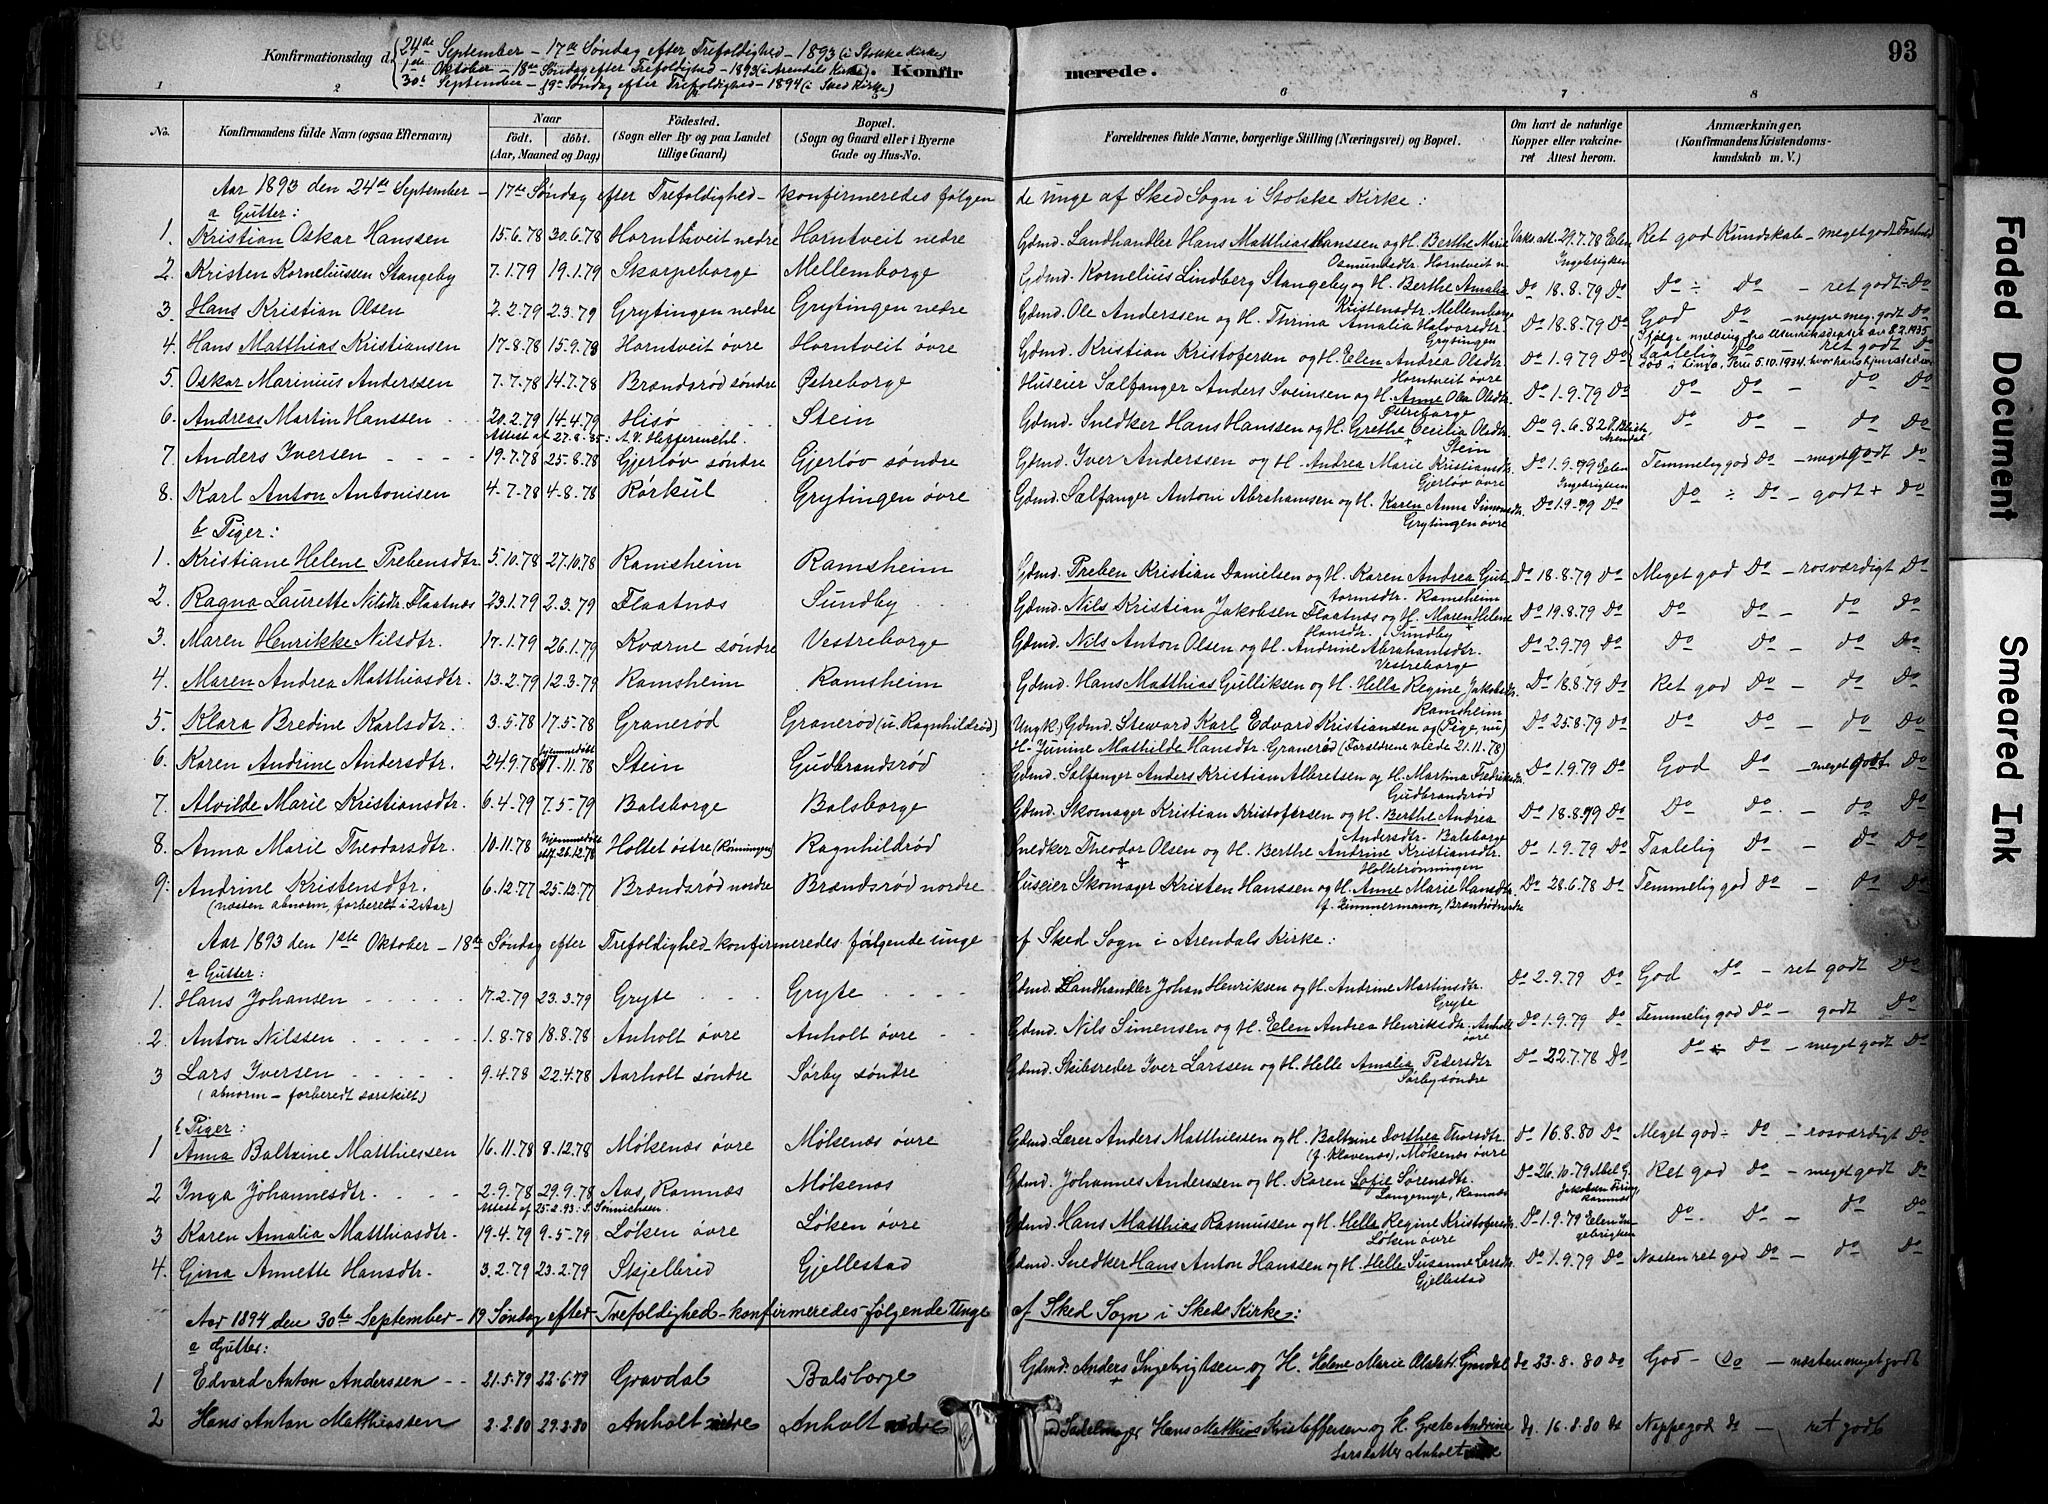 93
Konfirmationsdag d. 24de September – 17de Søndag efter Trefoldighed – 1893 (i Stokke Kirke)
1ste Oktober – 18de Søndag efter Trefoldighed – 1893 (i Arendals Kirke)
30te September – 19de Søndag efter Trefoldighed – 1894 (i Sked Kirke)
C. Konfirmerede.
1 2 6 7 8
No. Konfirmandens fulde Navn (ogsaa Efternavn) Naar født. døbt. (Aar, Maaned og Dag) Fødested. (Sogn eller By og paa Landet tillige Gaard) Bopæl. (Sogn og Gaard eller i Byerne Gade og Hus-No. Forældrenes fulde Navne, borgerlige Stilling (Næringsvei) og Bopæl. Om havt de naturlige Kopper eller vaccineret Attest herom. Anmærkninger. (Konfirmandens Kristendomskundskab m. V.)
Aar 1893 den 24de September – 17de Søndag efter Trefoldighed – konfirmeredes følgende unge af Sked Sogn i Stokke Kirke:
a Gutter:
1. Kristian Oskar Hanssen 15.6.78 30.6.78 Horntveit nedre Horntveit nedre Gdmd. Landhandler Hans Matthias Hanssen og H. Berthe Marie Osmundsdtr. Horntveit n. Vaks. att. 29.7.78 Elen Ingebrigtsen Ret god Kundskab – meget godt Forhold
2. Kristen Korneliussen Stangeby 7.1.79 19.1.79 Skarpeborge Mellemborge Gdmd. Kornelius Lindberg Stangeby og H. Berthe Amalia Kristensdtr. Mellemborge Do 18.8.79 Do Do ÷ Do – ret godt ÷ Do
3. Hans Kristian Olsen 2.2.79 2.3.79 Grytingen nedre Grytingen nedre Gdmd. Ole Anderssen og H. Thrina Amalia Halvorsdtr. Grytingen Do 18.8.79 Do God Do – neppe meg. godt Do
4. Hans Matthias Kristiansen 17.8.78 15.9.78 Horntveit øvre Horntveit øvre Gdmd. Kristian Kristofersen og H. Elen Andrea Olsdtr. Horntveit øvre Do 1.9.79 Do Taalelig Do – ret godt Do
5. Oskar Marinius Anderssen 7.7.78 14.7.78 Brændsrød søndre Østreborge Huseier Sælfanger Anders Svensen og H. Anne Olea Olsdtr. Østreborge Do 1.9.79 Do Do Do – Do Do
6. Andreas Martin Hanssen 20.2.79 14.4.79 Hisø Stein Gdmd. Snedker Hans Hanssen og H. Grethe Cecilia Olsdtr. Stein Do 9.6.82 Arendal Do Do – Do Do
7. Anders Iversen 19.7.78 25.8.78 Gjerløv søndre Gjerløv søndre Gdmd. Iver Anderssen og H. Andrea Marie Kristiansdtr. Gjerløv øvre Do 1.9.79 Elen Ingebrigtsen Temmelig god Do – meget godt Do
8. Karl Anton Antonisen 4.7.78 4.8.78 Rørkul Grytingen øvre Gdmd. Sælfanger Antoni Abrahamsen og H. Karen Anna Simonsdtr. Grytingen øvre Do 1.9.79 Do Do ÷ Do – godt + Do
b Piger:
1. Kristiane Helene Prebensdtr. 5.10.78 27.10.78 Ramsheim Ramsheim Gdmd. Preben Kristian Danielsen og H. Karen Andrea Guttormsdtr. Ramsheim Do 18.8.79 Do Meget god Do – rosværdigt Do
2. Ragna Laurette Nilsdtr. Flaatnæs 23.1.79 2.3.79 Flaatnæs Sundby Gdmd. Nils Kristian Jakobsen Flaatnæs og H. Maren Helene Hansdtr. Sundby Do 19.8.79 Do Do Do – Do Do
3. Maren Henrikke Nilsdtr. 17.1.79 26.1.79 Kværne søndre Vestreborge Gdmd. Nils Anton Olsen og H. Andrine Abrahamsdtr. Vestreborge Do 2.9.79 Do Do Do – Do Do
4. Maren Andrea Matthiasdtr. 13.2.79 12.3.79 Ramsheim Ramsheim Gdmd. Hans Matthias Gulliksen og H. Helle Regine Jakobsdtr. Ramsheim Do 18.8.79 Do Ret god Do – Do Do
5. Klara Bredine Karlsdtr. 3.5.78 17.5.78 Granerød Granerød (u. Ragnhildrød) (Ungk.) Gdmd. Steward Karl Edvard Kristiansen og (Pige, nu) H. Junine Mathilde Hansdtr. Granerød (Forældrene viede 21.11.78) Do 25.8.79 Do Do Do – Do Do
6. Karen Andrine Andersdtr. 24.9.78 hjemmedøbt 17.11.78 Stein Gudbrandsrød Gdmd. Sælfanger Anders Kristian Albretsen og H. Martina Fredriksdtr. Gudbrandsrød Do 1.9.79 Do God Do – meget godt Do
7. Alvilde Marie Kristiansdtr. 6.4.79 7.5.79 Balsborge Balsborge Gdmd. Skomager Kristian Kristofersen og H. Berthe Andrea Andersdtr. Balsborge Do 18.8.79 Do Do Do – Do Do
8. Anna Marie Theodorsdtr. 10.11.78 hjemmedøbt 26.12.78 Holtet østre (Rønningen) Ragnhildrød Snedker Theodor Olsen og H. Berthe Andrine Kristiansdtr. Holtetrønningen Do 1.9.79 Do Taalelig Do – Do Do
9. Andrine Kristensdtr. 6.12.77 25.12.77 Brændsrød nordre Brændsrød nordre Huseier Skomager Kristen Hanssen og H. Anne Marie Hansdtr. f. Zimmermann, Do 28.6.78 Do Temmelig god Do – Do Do
(næsten abnorm, forberedt i 2 Aar)
Aar 1893 den 1ste Oktober – 18de Søndag efter Trefoldighed – konfirmeredes følgende unge af Sked Sogn i Arendals Kirke:
a Gutter:
1. Hans Johansen 7.2.79 23.3.79 Gryte Gryte Gdmd. Landhandler Johan Henriksen og H. Andrine Martinsdtr. Gryte Do 2.9.79 Do God Do – ret godt Do
2. Anton Nilssen 1.8.78 18.8.78 Anholt øvre Anholt øvre Gdmd. Nils Simensen og H. Elen Andrea Henriksdtr. Anholt øvre Do 1.9.79 Do Temmelig god Do – godt Do
3 Lars Iversen 9.4.78 22.4.78 Aarholt søndre Sørby søndre Gdmd. Skibsreder Iver Larssen og H. Helle Amalia Pedersdtr Sørby søndre Do 22.7.78 Do Do Do – meget godt Do
(abnorm – forberedt særskilt)
b Piger:
1 Anna Baltzine Matthiessen 16.11.78 8.12.78 Møkenæs øvre Møkenæs øvre Gdmd. Lærer Anders Matthiessen og H. Baltzine Dorthea Thorsdtr. (f. Klavenæs), Møkenæs øvre Do 16.8.80 Do Meget god Do – rosværdigt Do
2 Inga Johannesdtr. 2.9.78 29.9.78 Aas, Ramnæs Møkenæs Gdmd. Johannes Anderssen og H. Karen Sofie Sørensdtr. Langemyr, Ramnæs Do 26.10.79 Ret god Do – meget godt Do
3 Karen Amalia Matthiasdtr. 19.4.79 9.5.79 Løken øvre Løken øvre Gdmd. Hans Matthias Rasmussen og H. Helle Regine Kristofersdtr. Løken øvre Do 1.9.79 Elen Ingebrigtsen Do Do – Do Do
4. Gina Annette Hansdtr. 3.2.79 23.2.79 Skjelbred Gjellestad Gdmd. Snedker Hans Anton Hanssen og H. Helle Susanne Larsdtr. Gjellestad Do 1.9.79 Do Næsten ret god Do – Do Do
Aar 1894 den 30te September – 19 Søndag efter Trefoldighed – konfirmeredes følgende Unge af Sked Sogn i Skeds Kirke:
a Gutter:
1 Edvard Anton Anderssen 21.5.79 22.6.79 Gravdal Balsborge Gdmd. Anders Ingebrigtsen og H. Helene Marie Olsdtr. Do 23.8.80 Do God – Do – næsten meget godt
2 Hans Anton Matthiassen 2.2.80 29.2.80 Anholt nedre Anholt nedre Sadelmager Hans Matthias Kristoffersen og H. Grete Andrine Larsdatter Anholt Do 16.8.80 Do Neppe god Do – ret godt
Faded Document
Smeared Ink